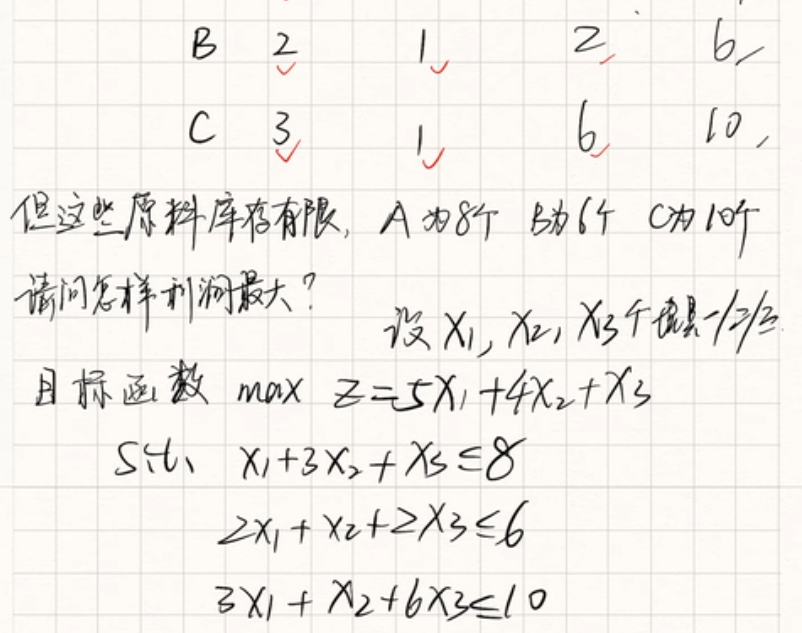 B 2 1 2 6
C 3 1 6 10
但这些原料库存有限, A为8个 B为6个 C为10个
请问怎样利润最大?
设 X₁, X₂, X₃个玩具一/二/三
目标函数 max Z=5X₁+4X₂+X₃
S.t. X₁+3X₂+X₃≤8
2X₁+X₂+2X₃≤6
3X₁+X₂+6X₃≤10